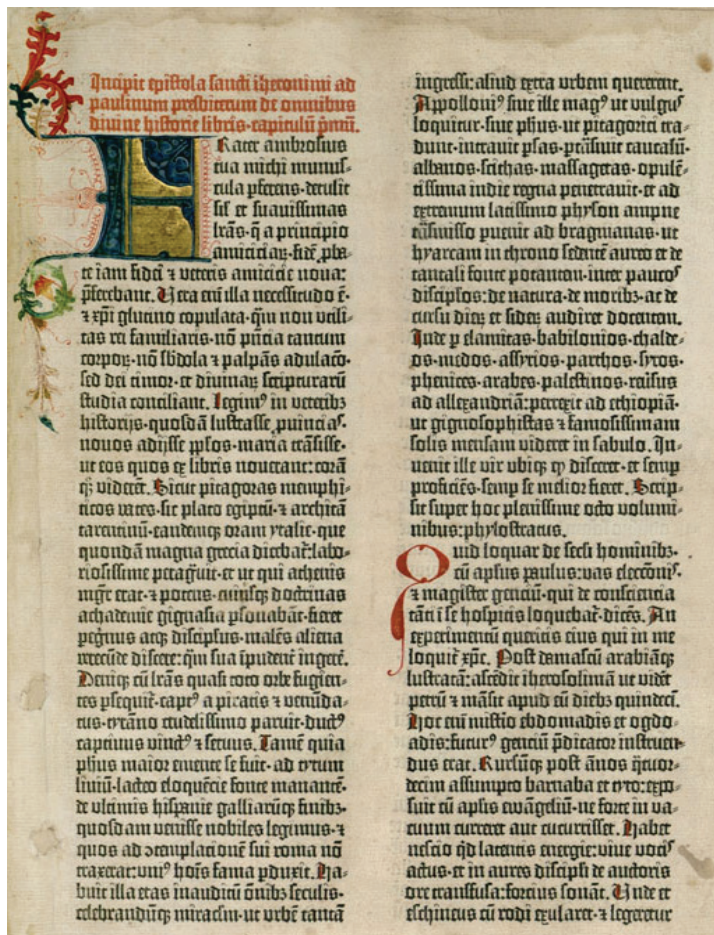 Incipit epistola sancti iheronimi ad
paulinum presbiterum de omnibus
divine historie libris·capitulū pmū.
Frater ambrosius
tua michi munus-
cula pferens·detulit
sil' et suauissimas
lrās·q̄ a principio
amiciciaꝝ·fidē pba-
te iam fidei ⁊ veteris amicicie noua:
pferebant. Vera eni illa necessitudo ē·
⁊ xpi glutino copulata·q̄m non vtili-
tas rei familiaris·nō pñcia tantum
corpoꝝ·nō sbdola ⁊ palpās adulaco·
sed dei timor·et diuinaꝝ scripturarū
studia conciliant. Legim⁹ in veterib₃
historijs·quosdā lustrasse puincias·
nouos adijsse pplos·maria trāsisse·
ut eos quos ex libris nouerant: corā
q₃ viderēt. Sicut pitagoras memphi-
ticos vates·sic plato egiptū·⁊ architā
tarentinū·eandemq₃ oram ytalie·que
quondā magna grecia dicebat̄: labo-
riosissime peragͣuit·et ut qui athenis
mgr̄ erat·⁊ potens·cuiusq₃ doctrinas
achademie gignasia psonabāt·fieret
pegͥnus atq₃ discipulus·malēs aliena
verecūde discere: q̄m sua ipudent̄ ingerē.
Deniq₃ cū lrās quasi toto orbe fugien-
tes psequit̄·capt⁹ a piratis ⁊ venūda-
tus·tyrāno crudelissimo paruit·duct⁹
captiuus vinct⁹ ⁊ seruus. Tamē quia
phus maior emente se fuit·ad tytum
liuiū·lacteo eloquēcie fonte manantē·
de vltimis hispanie galliarūq₃ finib₃·
quosdam venisse nobiles legimus·⁊
quos ad ɔtemplacionē sui roma nō
traxerat: vni⁹ hoīs fama pduxit. Ha-
buit illa etas inauditū oñib₃ seculis·
celebrandūq₃ miraclm·ut vrbē tantā
ingressi: aliud extra vrbem quererent.
Appolloni⁹ siue ille mag⁹ ut vulgus
loquitur·siue phus·ut pitagorici tra-
dunt·intrauit psas·ptͣnsiuit caucasū·
albanos·scithas·massagetas·opulē-
tissima indie regna penetrauit·et ad
extremum latissimo physon ampne
trāsmisso puenit ad bragmanas·ut
hyarcam in throno sedentē aureo et de
tantali fonte potantem·inter paucos
discipl'os: de natura·de morib₃·ac de
cursu dieꝝ et sideꝝ audiret docentem.
Inde p elamitas·babilonios·chalde-
os·medos·assyrios·parthos·syros·
phenices·arabes·palestinos·reuersus
ad allexandriā: perrexit ad ethiopiā·
ut gignosophistas ⁊ famosissimam
solis mensam videret in sabulo. In-
uenit ille vir vbiq₃ qͦ disceret·et semp
proficiēs·semp se melior fieret. Scrip-
sit super hoc plenissime octo volumi-
nibus: phylostratus.
Quid loquar de secli hominib₃·
cū aplus paulus: vas eleccōnis·
⁊ magister genciū·qui de consciencia
tāti i se hospitis loquebat̄·dicēs. An
experimentū queritis eius qui in me
loquit̄ xpc. Post damascū arabiāq₃
lustratā: ascēdit iherosolimā ut vidēt
petrū ⁊ māsit apud eū dieb₃ quindecī.
Hoc eni mistio ebdomadis et ogdo-
adis: futur⁹ genciū pdicator instruen-
dus erat. Rursūq₃ post ānos q̄tuor-
decim assumpto barnaba et tyto: expo-
suit cū aplis ewāgeliū·ne forte in va-
cuum curreret aut cucurrisset. Habet
nescio qd latentis energie: viue vocis
actus·et in aures discipli de auctoris
ore transfusa: forcius sonāt. Vnde et
eschineus cū rodi exularet·⁊ legeretur